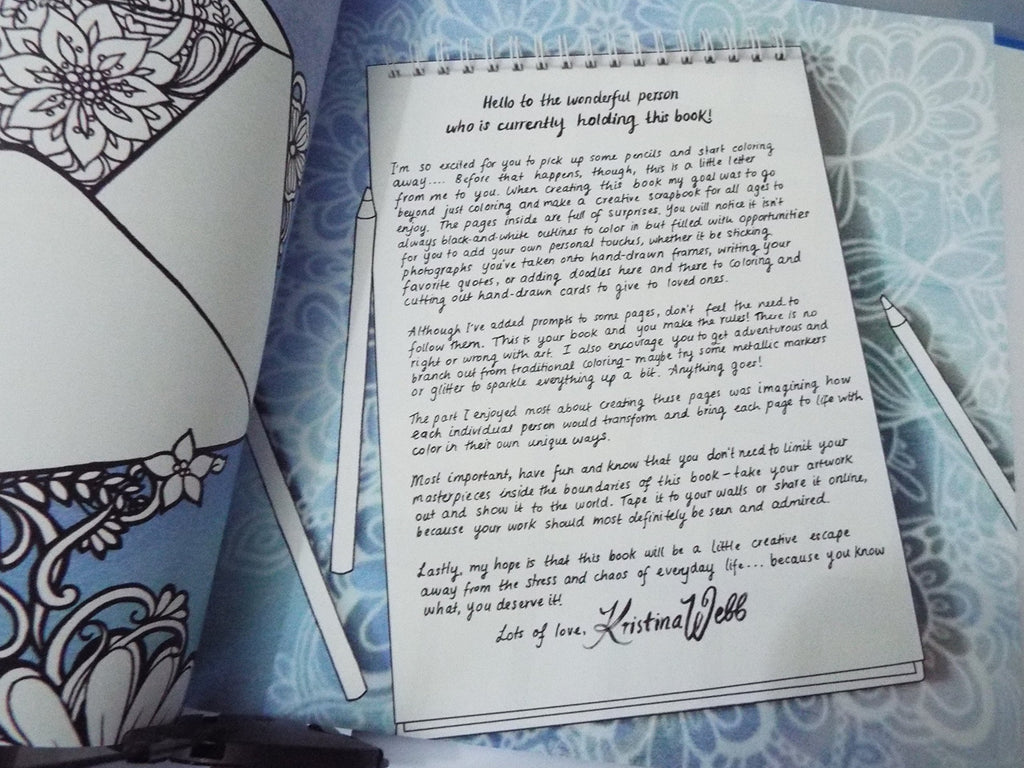 Hello to the wonderful person
who is currently holding this book!
I'm so excited for you to pick up some pencils and start coloring
away.... Before that happens, though, this is a little letter
from me to you. When creating this book my goal was to go
beyond just coloring and make a creative scrapbook for all ages to
enjoy. The pages inside are full of surprises. You will notice it isn't
always black-and-white outlines to color in but filled with opportunities
for you to add your own personal touches, whether it be sticking
photographs you've taken onto hand-drawn frames, writing your
favorite quotes, or adding doodles here and there to coloring and
cutting out hand-drawn cards to give to loved ones.
Although I've added prompts to some pages, don't feel the need to
follow them. This is your book and you make the rules! There is no
right or wrong with art. I also encourage you to get adventurous and
branch out from traditional coloring - maybe try some metallic markers
or glitter to sparkle everything up a bit. Anything goes!
The part I enjoyed most about creating these pages was imagining how
each individual person would transform and bring each page to life with
color in their own unique ways.
Most important, have fun and know that you don't need to limit your
masterpieces inside the boundaries of this book - take your artwork
out and show it to the world. Tape it to your walls or share it online,
because your work should most definitely be seen and admired.
Lastly, my hope is that this book will be a little creative escape
away from the stress and chaos of everyday life... because you know
what, you deserve it!
Lots of love, Kristina Webb